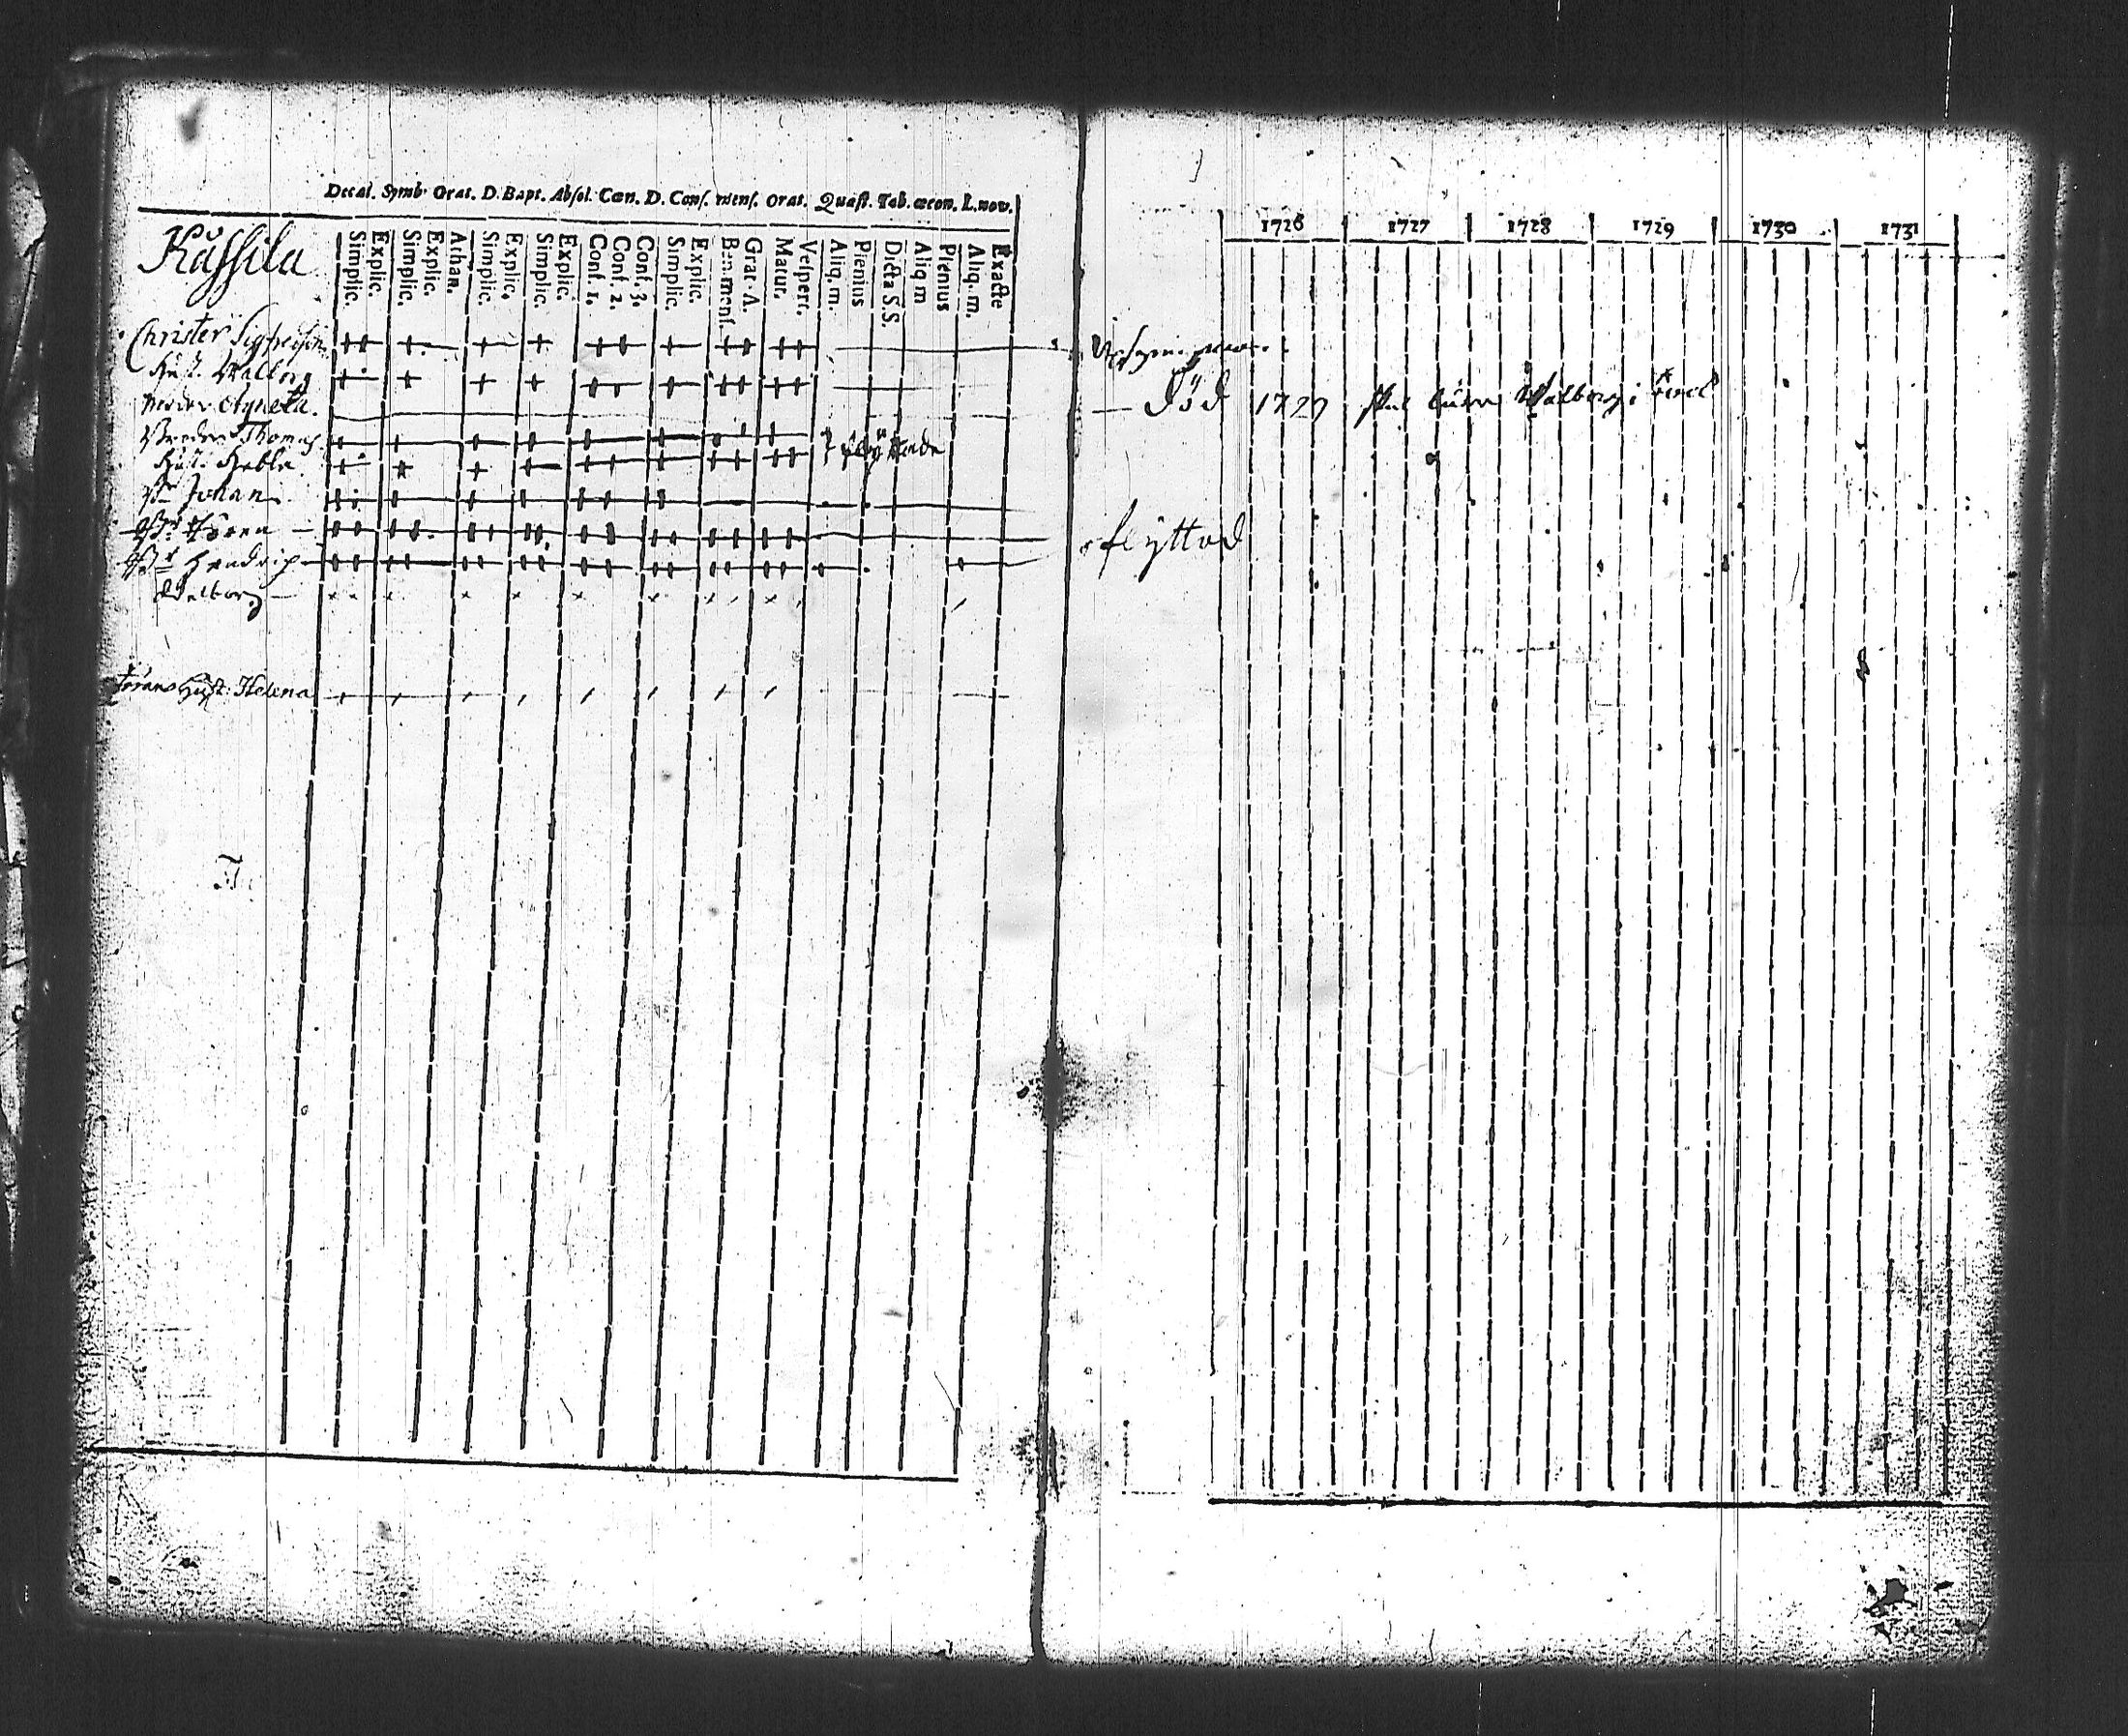 Decal. Symb. Orat. D. Bapt. Absol. Cœn. D. Conf. mens. Orat. Quæst. Tab. œcon. L. nov.
Simplic. Explic. Simplic. Explic. Athan. Simplic. Explic. Simplic. Explic. Conf. 1. Conf. 2. Conf. 3. Simplic. Explic. Ben. mens. Grat. A. Matur. Vespert. Aliq. m. Plenius Dicta S.S. Aliq. m Plenius Aliq. m. Exacte
Kässila
Christer Sigfredson
Hust. Walborg
Moder Agneta.
Broder Thomas
Hust. Hebla flyttade
Br Johan
Br Jöran
Br Hendrich
Walborg
Jörans Hust: Helena
1726 1727 1728 1729 1730 1731
Död 1727 Walborg i
flyttad